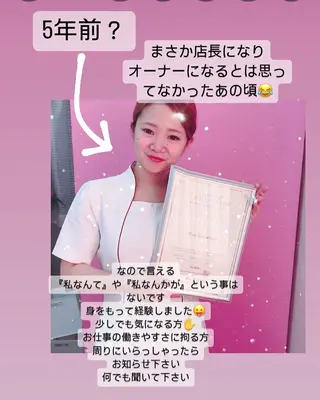 5年前？
まさか店長になり
オーナーになるとは思っ
てなかったあの頃😂
なので言える
『私なんて』や『私なんかが』という事は
ないです
身をもって経験しました😛
少しでも気になる方✋
お仕事の働きやすさに拘る方
周りにいらっしゃったら
お知らせ下さい
何でも聞いて下さい